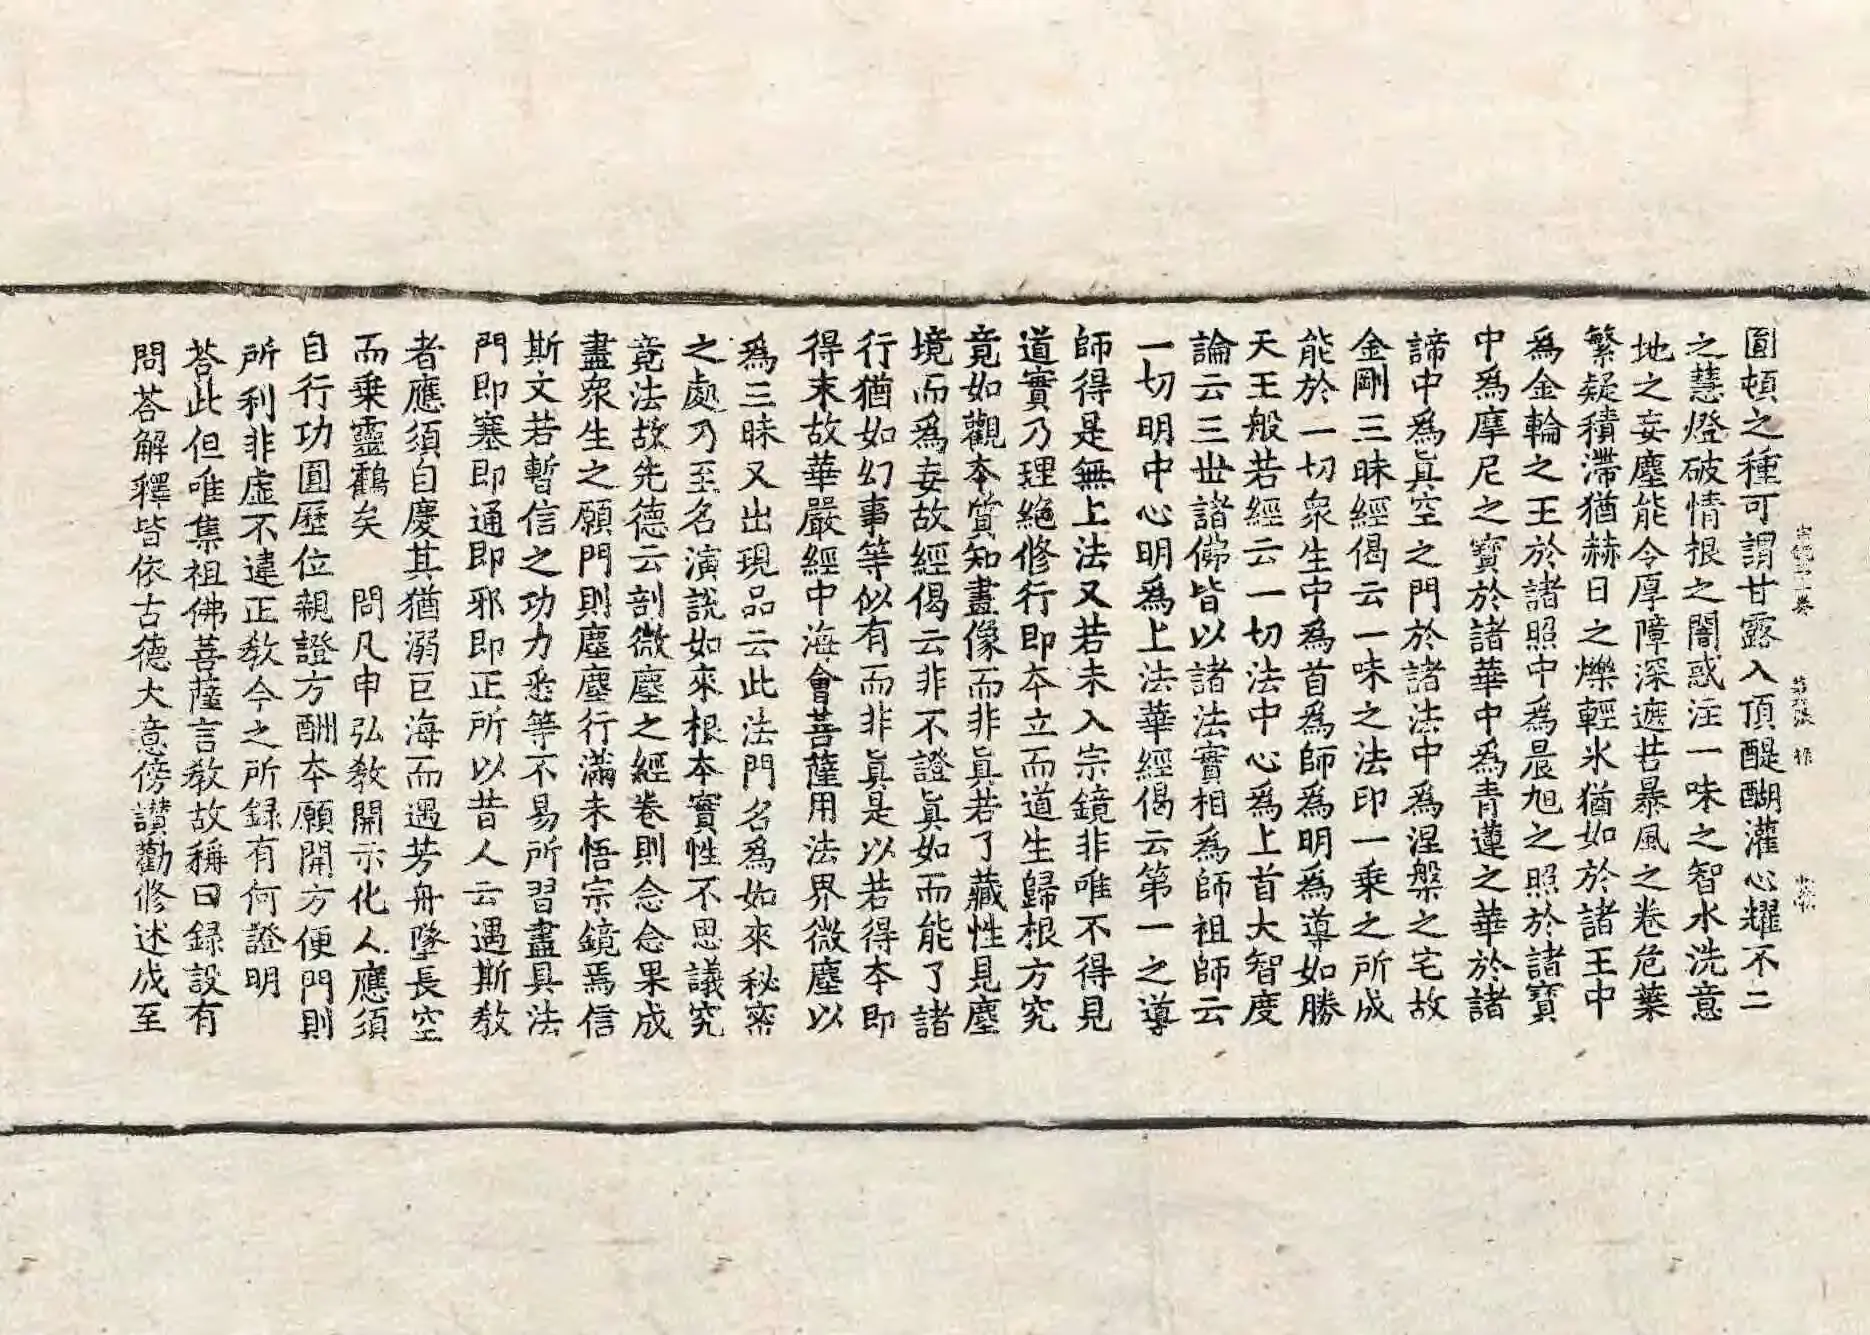 圓頓之種可謂甘露入頂醍醐灌心耀不二
之慧燈破情根之闇惑注一味之智水洗意
地之妄塵能令厚障深遮若暴風之卷危葉
繁疑積滯猶赫日之爍輕氷猶如於諸王中
爲金輪之王於諸照中爲晨旭之照於諸寶
中爲摩尼之寶於諸華中爲青蓮之華於諸
諦中爲眞空之門於諸法中爲涅槃之宅故
金剛三昧經偈云一味之法印一乗之所成
能於一切衆生中爲首爲師爲明爲導如勝
天王般若經云一切法中心爲上首大智度
論云三世諸佛皆以諸法實相爲師祖師云
一切明中心明爲上法華經偈云第一之導
師得是無上法又若未入宗鏡非唯不得見
道實乃理絶修行即本立而道生歸根方究
竟如觀本質知畫像而非眞若了藏性見塵
境而爲妄故經偈云非不證眞如而能了諸
行猶如幻事等似有而非眞是以若得本即
得末故華嚴經中海會菩薩用法界微塵以
爲三昧又出現品云此法門名爲如來秘密
之處乃至名演說如來根本實性不思議究
竟法故先德云剖微塵之經卷則念念果成
盡衆生之願門則塵塵行滿未悟宗鏡焉信
斯文若暫信之功力悉等不易所習盡具法
門即塞即通即邪即正所以昔人云遇斯教
者應須自慶其猶溺巨海而遇芳舟墜長空
而乗靈鶴矣　問凡申弘教開示化人應須
自行功圓歷位親證方酬本願開方便門則
所利非虛不違正教今之所録有何證明
荅此但唯集祖佛菩薩言教故稱曰録設有
問荅解釋皆依古德大意傍讚勸修述成至